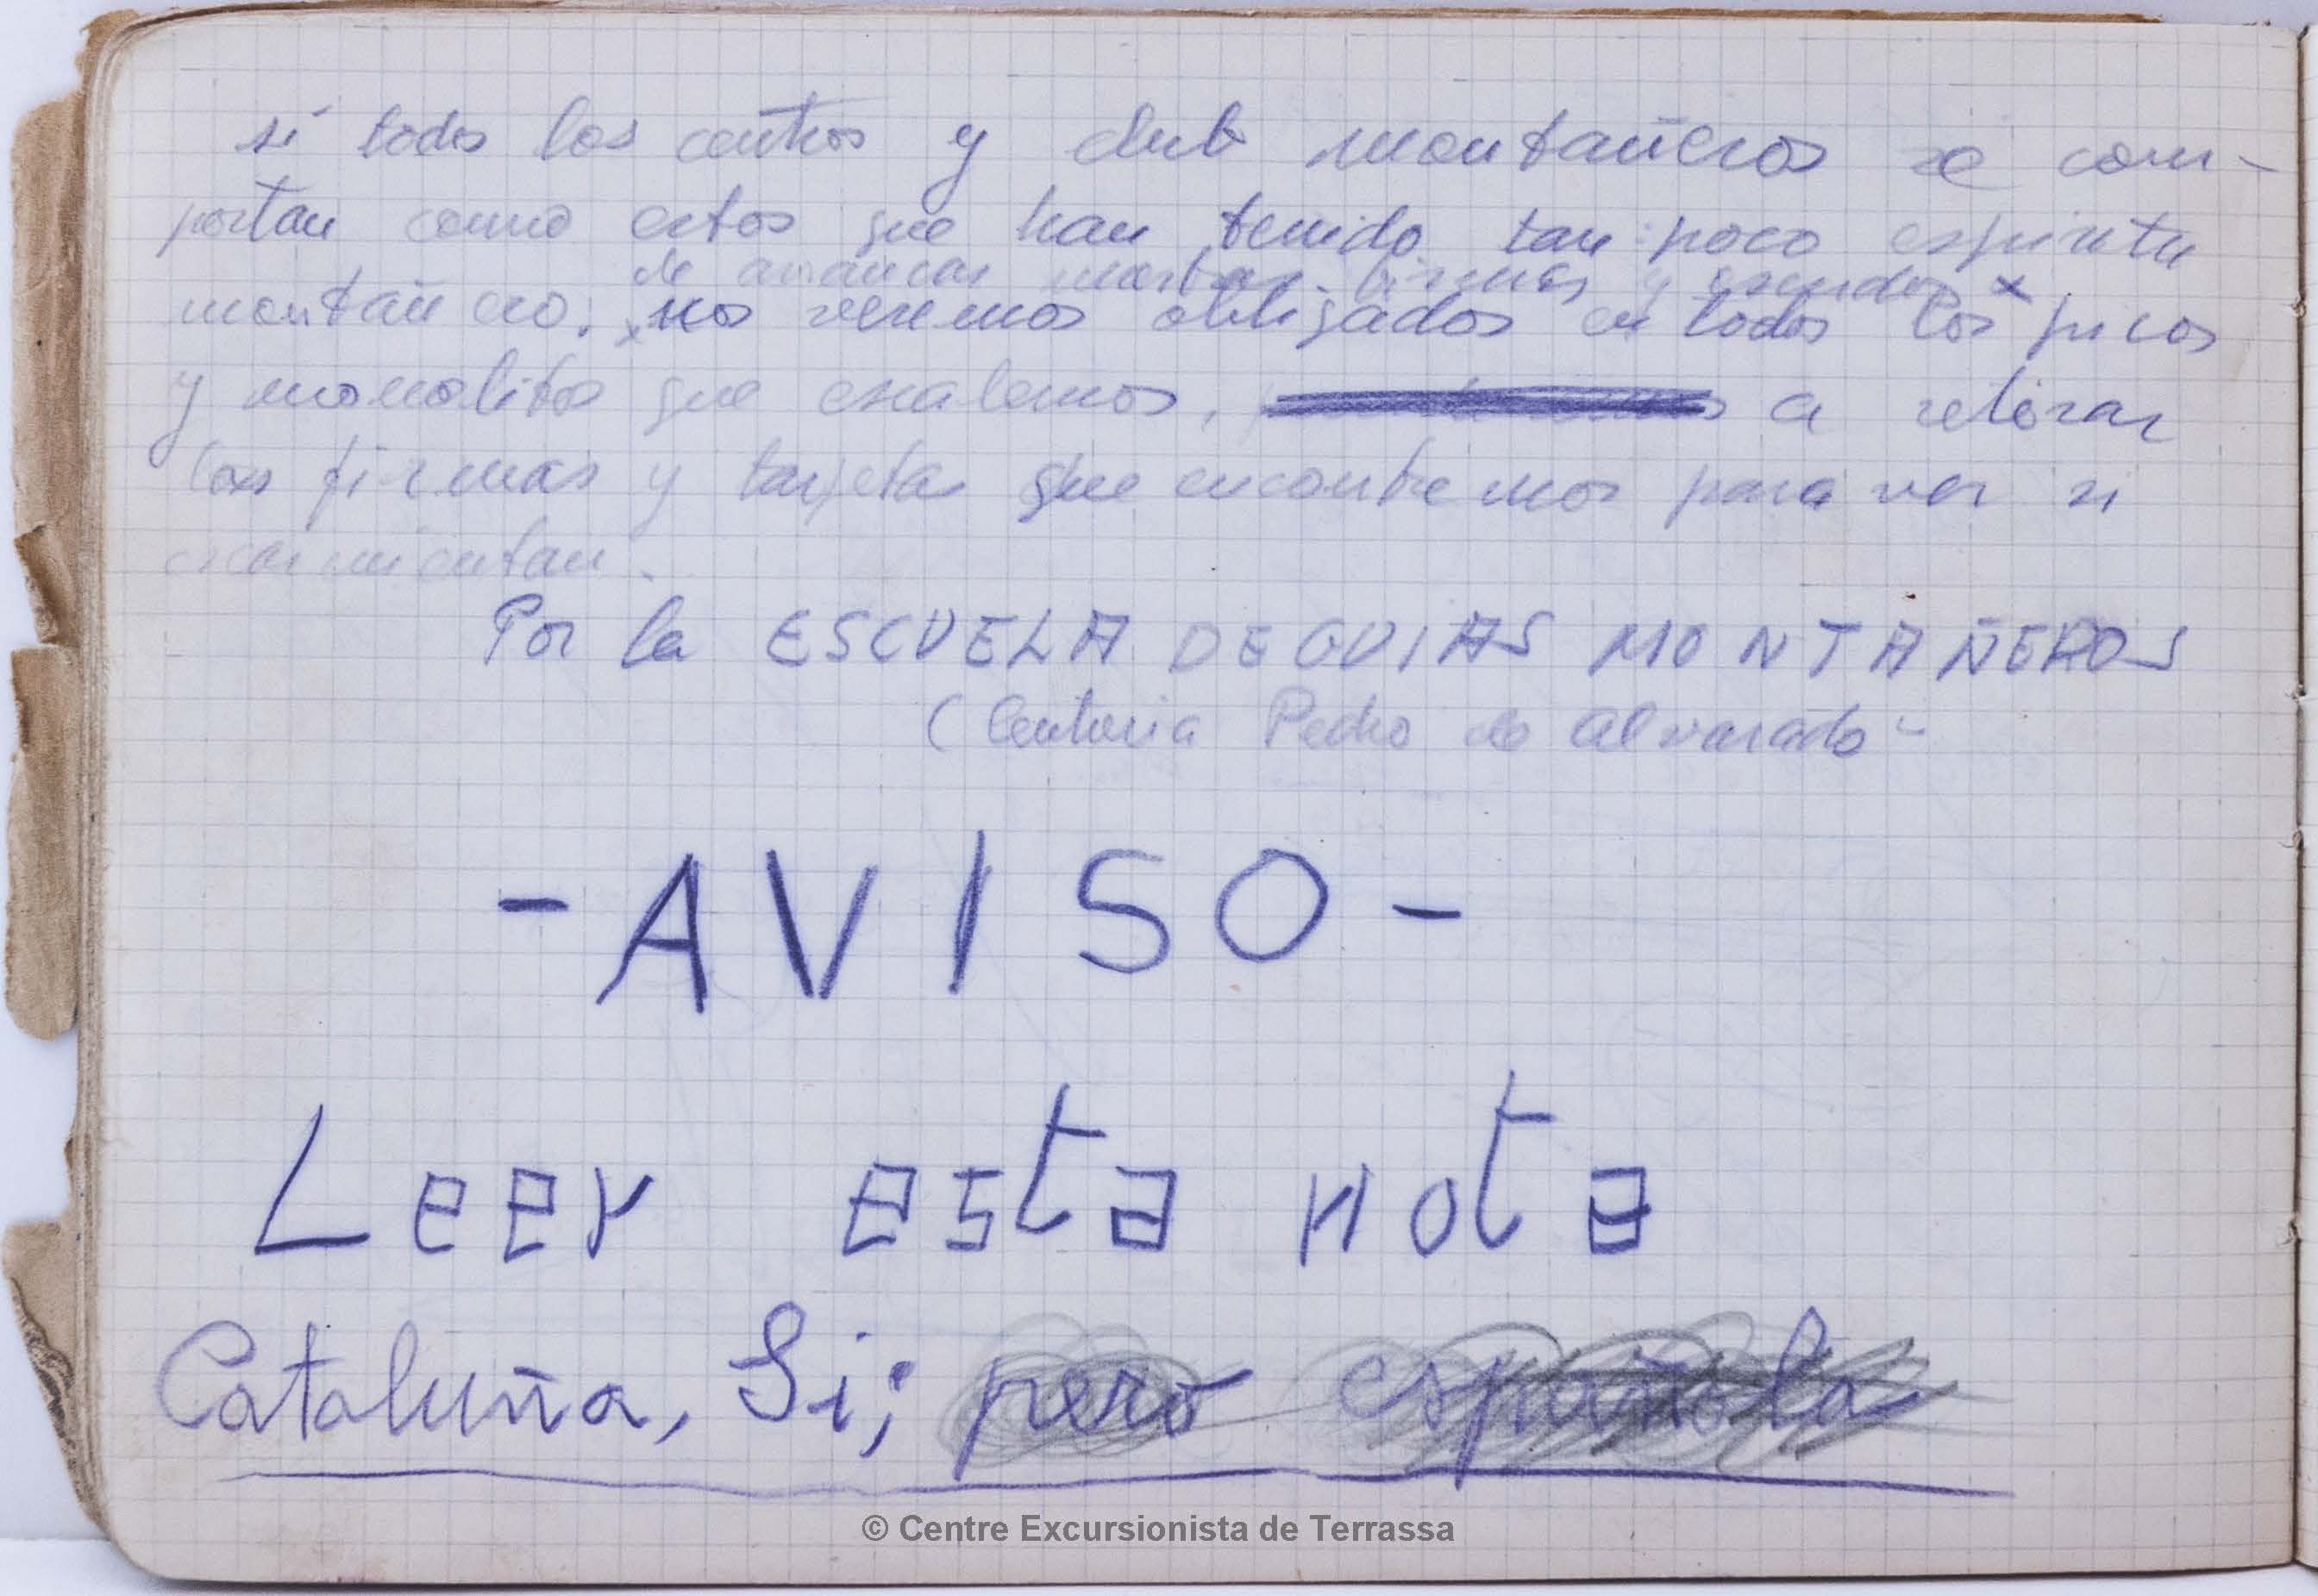 si todos los centros y club montañeros se com-
portan como estos que han tenido tan poco espiritu
de arrancar nuestras firmas y escudos x
montañero. x nos veremos obligados en todos los picos
y monolitos que escalemos, a retirar
las firmas y tarjetas que encontremos para ver si
escarmientan.
Por la ESCUELA DE GUIAS MONTAÑEROS
(Centuria Pedro de Alvarado-
-AVISO-
Leer esta nota
Cataluña, Si; pero española
© Centre Excursionista de Terrassa